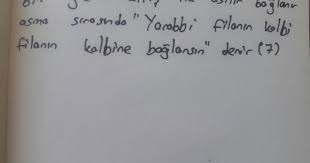 bağlanır
asma sırasında "Yarabbi filanın kalbi
filanın kalbine bağlansın" denir (7)